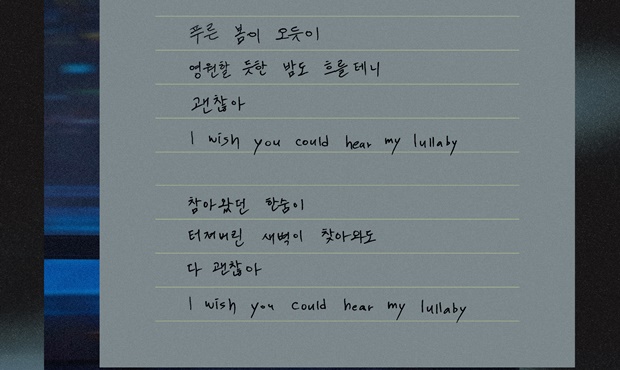 푸른 봄이 오듯이
영원할 듯한 밤도 흐를 테니
괜찮아
I wish you could hear my lullaby
참아왔던 한숨이
터져버린 새벽이 찾아와도
다 괜찮아
I wish you could hear my lullaby